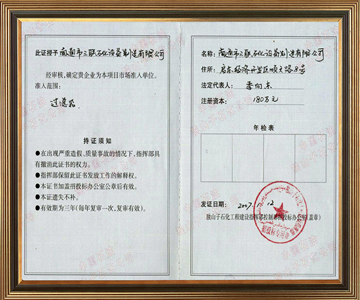 此证授予 南通市三联石化设备制造有限公司
经审核，确定贵企业为本项目市场准入单位。
准入范围：
过滤器
持证须知
●在出现严重苦情、质量事故的情况下，指挥部具
有撤消此证书的权力。
●指挥部保留此证书发放工作的解释权。
●本证书加盖招投标办公室公章后有效。
●本证遗失不补。
●有效期为三年(每年复审一次，复审有效)。
名称：南通市三联石化设备制造有限公司
住所：启东经济开发区
法定代表人：
注册资本：180万元
年检表
发证日期：2007. 12
独山子石化工程建设指挥部控制部招投标办公室(盖章)